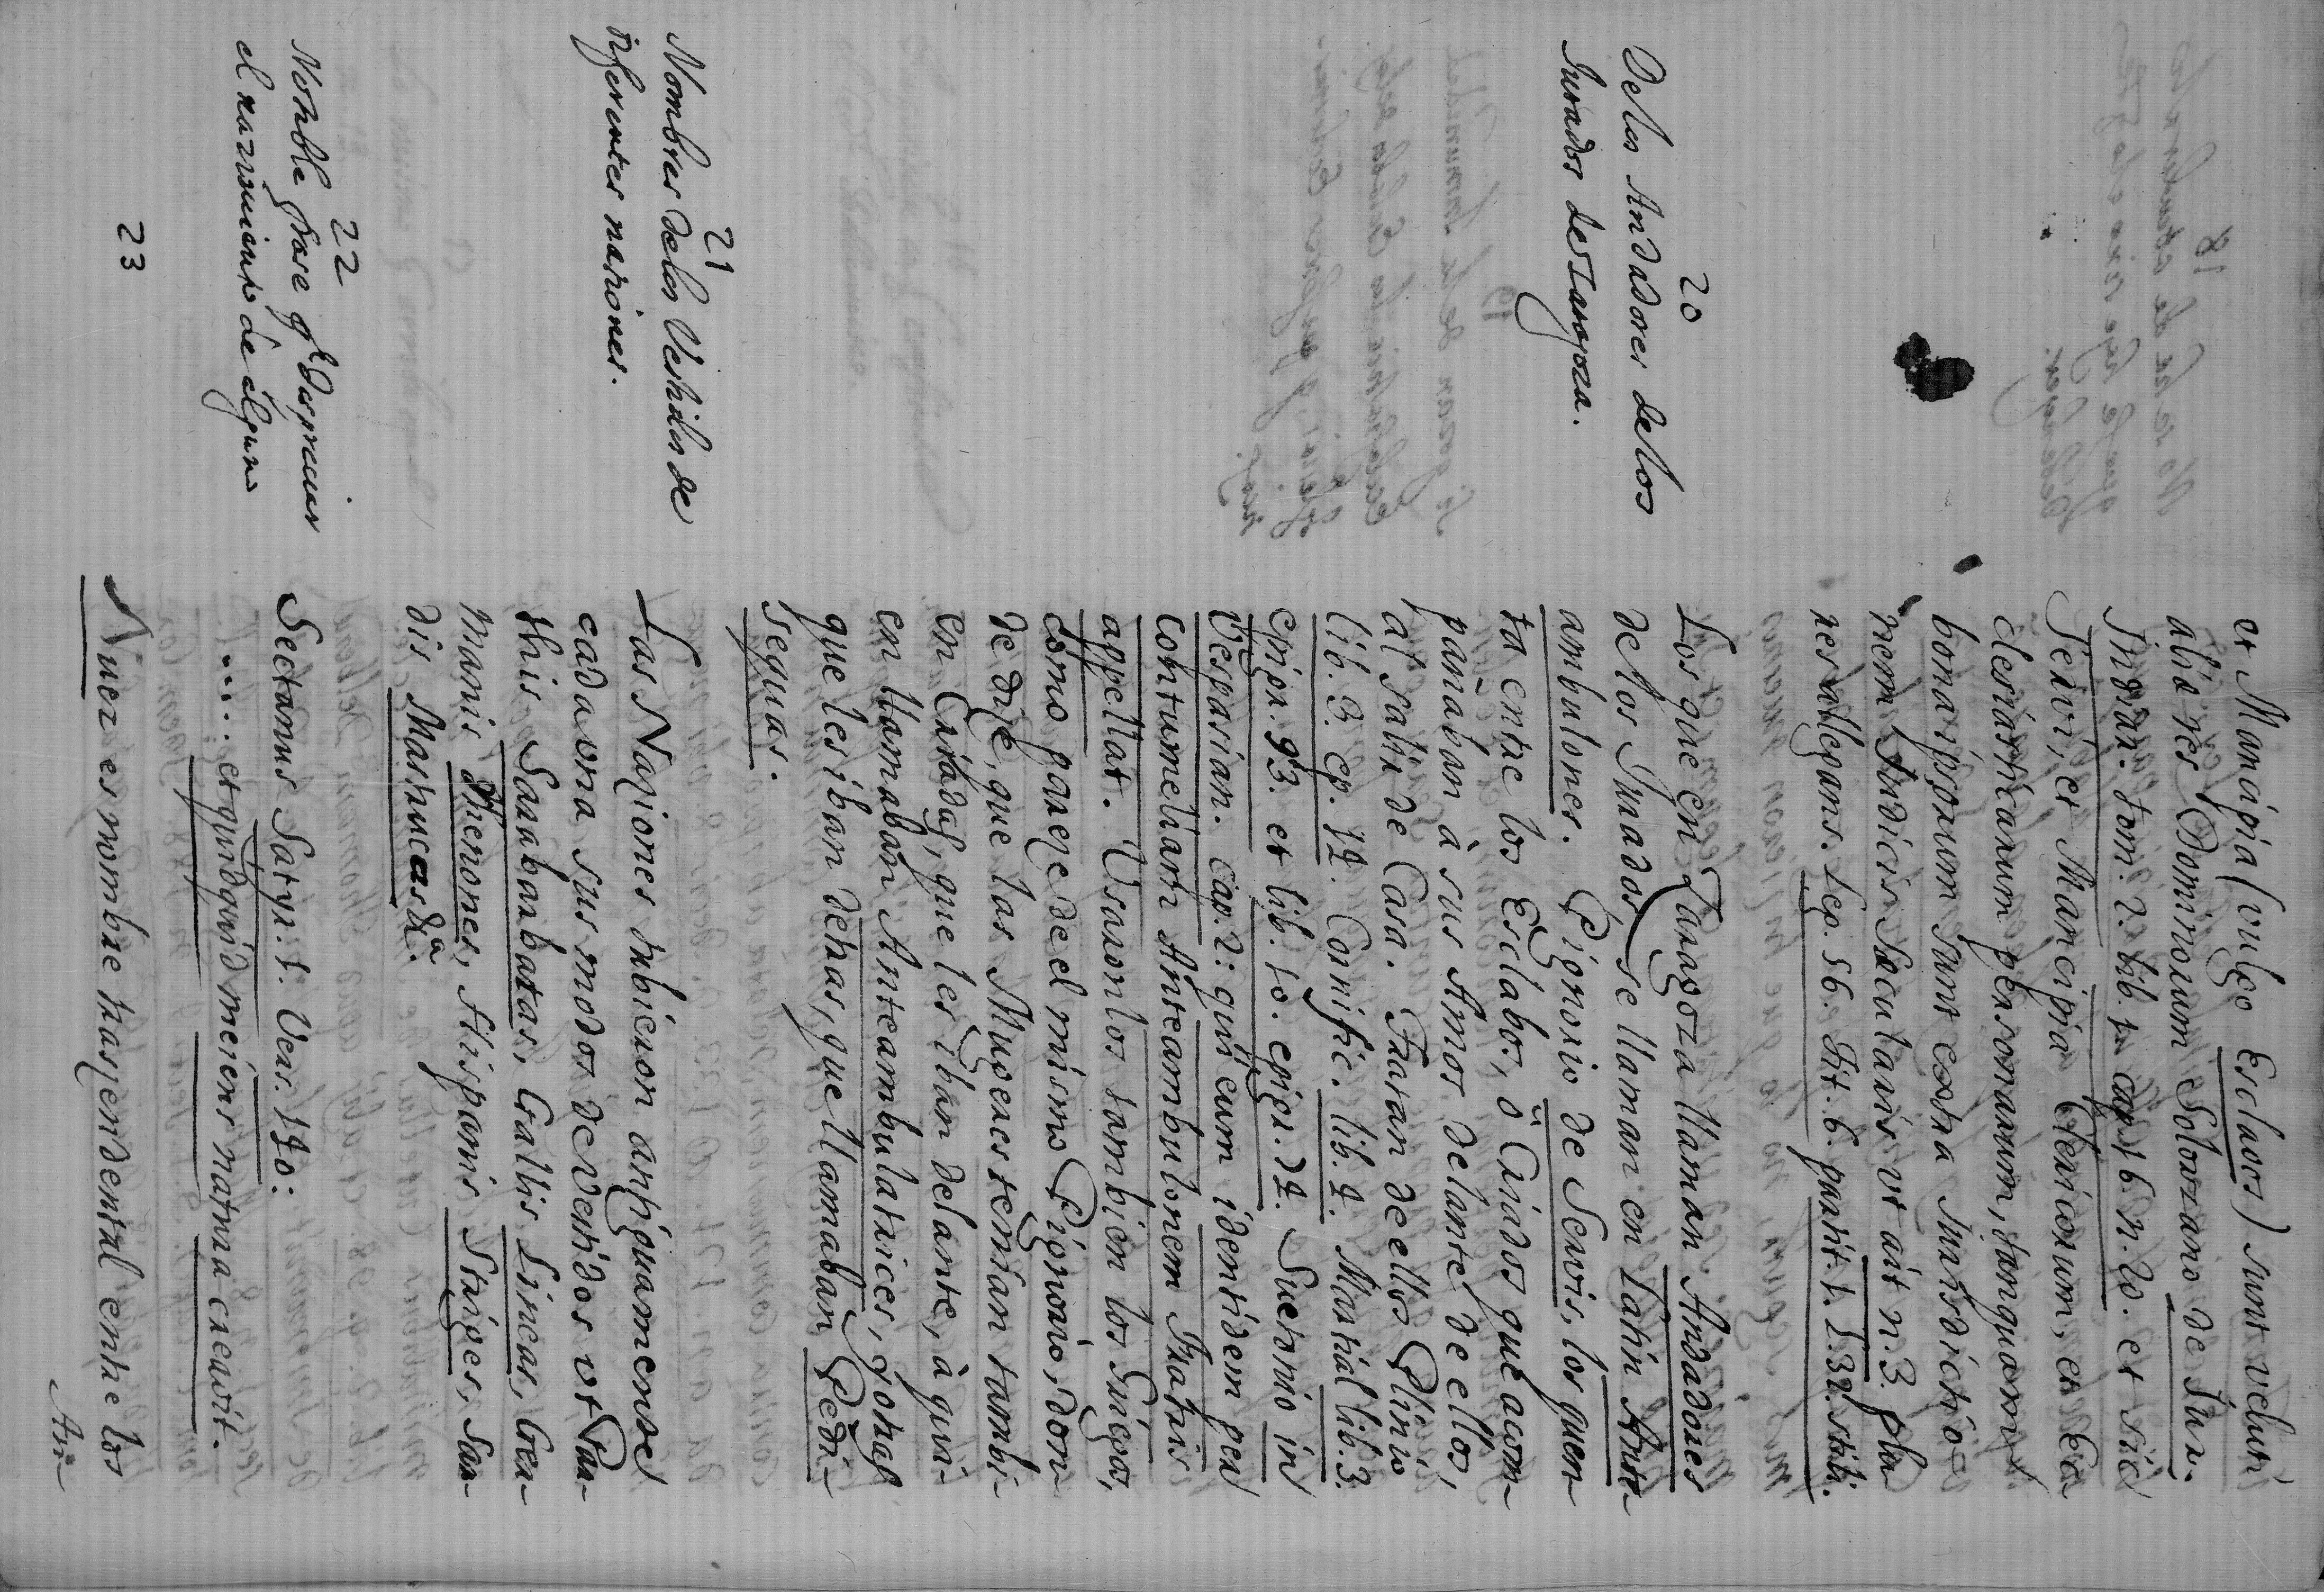 et Mancipia (vulgo Esclavos) sunt veluti
aliæ res Dominorum Solorzano de Iur.
Indiar. tom. 2. lib. 1. cap. 16. n. 20. et sic
Servi, et Mancipia Clericorum, et Ec-
clesiasticarum personarum, tanquam
bona ipsorum sunt extra Iurisdictio-
nem Iudicis Sæcularis vt ait n. 3. plu
res allegans. Leg. 56. tit. 6. partit. 1. L. 32. stili.
20
De los Andadores de los
Jurados de Zaragoza.
Los que en Zaragoza llaman Andadores
de los Jurados se llaman en Latin Ante-
ambulones. Pignorio de Servis, los quen-
ta entre los Esclabos, ò Criados que acom-
pañaban à sus Amos delante de ellos,
al salir de Casa. Tratan de ellos Plinio
lib. 3. ep. 14. Cornific. lib. 4. Martial lib. 3.
epigr. 93. et lib. 10. epigr. 74. Suetonio in
Vespasian. cap. 2: qui eum identidem per
contumeliam Anteambulonem Fratris
appellat. Vsaronlos tambien los Griegos,
como pareze de el mismo Pignorio, don-
de dize, que las Mugeres tenian tambi-
en Criadas, que les iban delante, à qui-
en llamaban Anteambulatrices, y otras
que les iban detras, que llamaban Pedi-
sequas.
21
Nombres de los Vestidos de
diferentes naziones.
Las Naziones tubieron antiguamente
cada vna sus modos de vestidos vt Par-
this Sarabarbatas, Gallis Lineas, Ger-
manis Rhenones, Hispanis Striges, Sar-
dis Mastrucas &a.
22
Notable frase q desprecian
el nazimiento de alguno
Sectanus Satyr. 1. Vers. 140:
.... et quidquid meiens natura creavit.
23
Nuez es nombre traszendental entre los